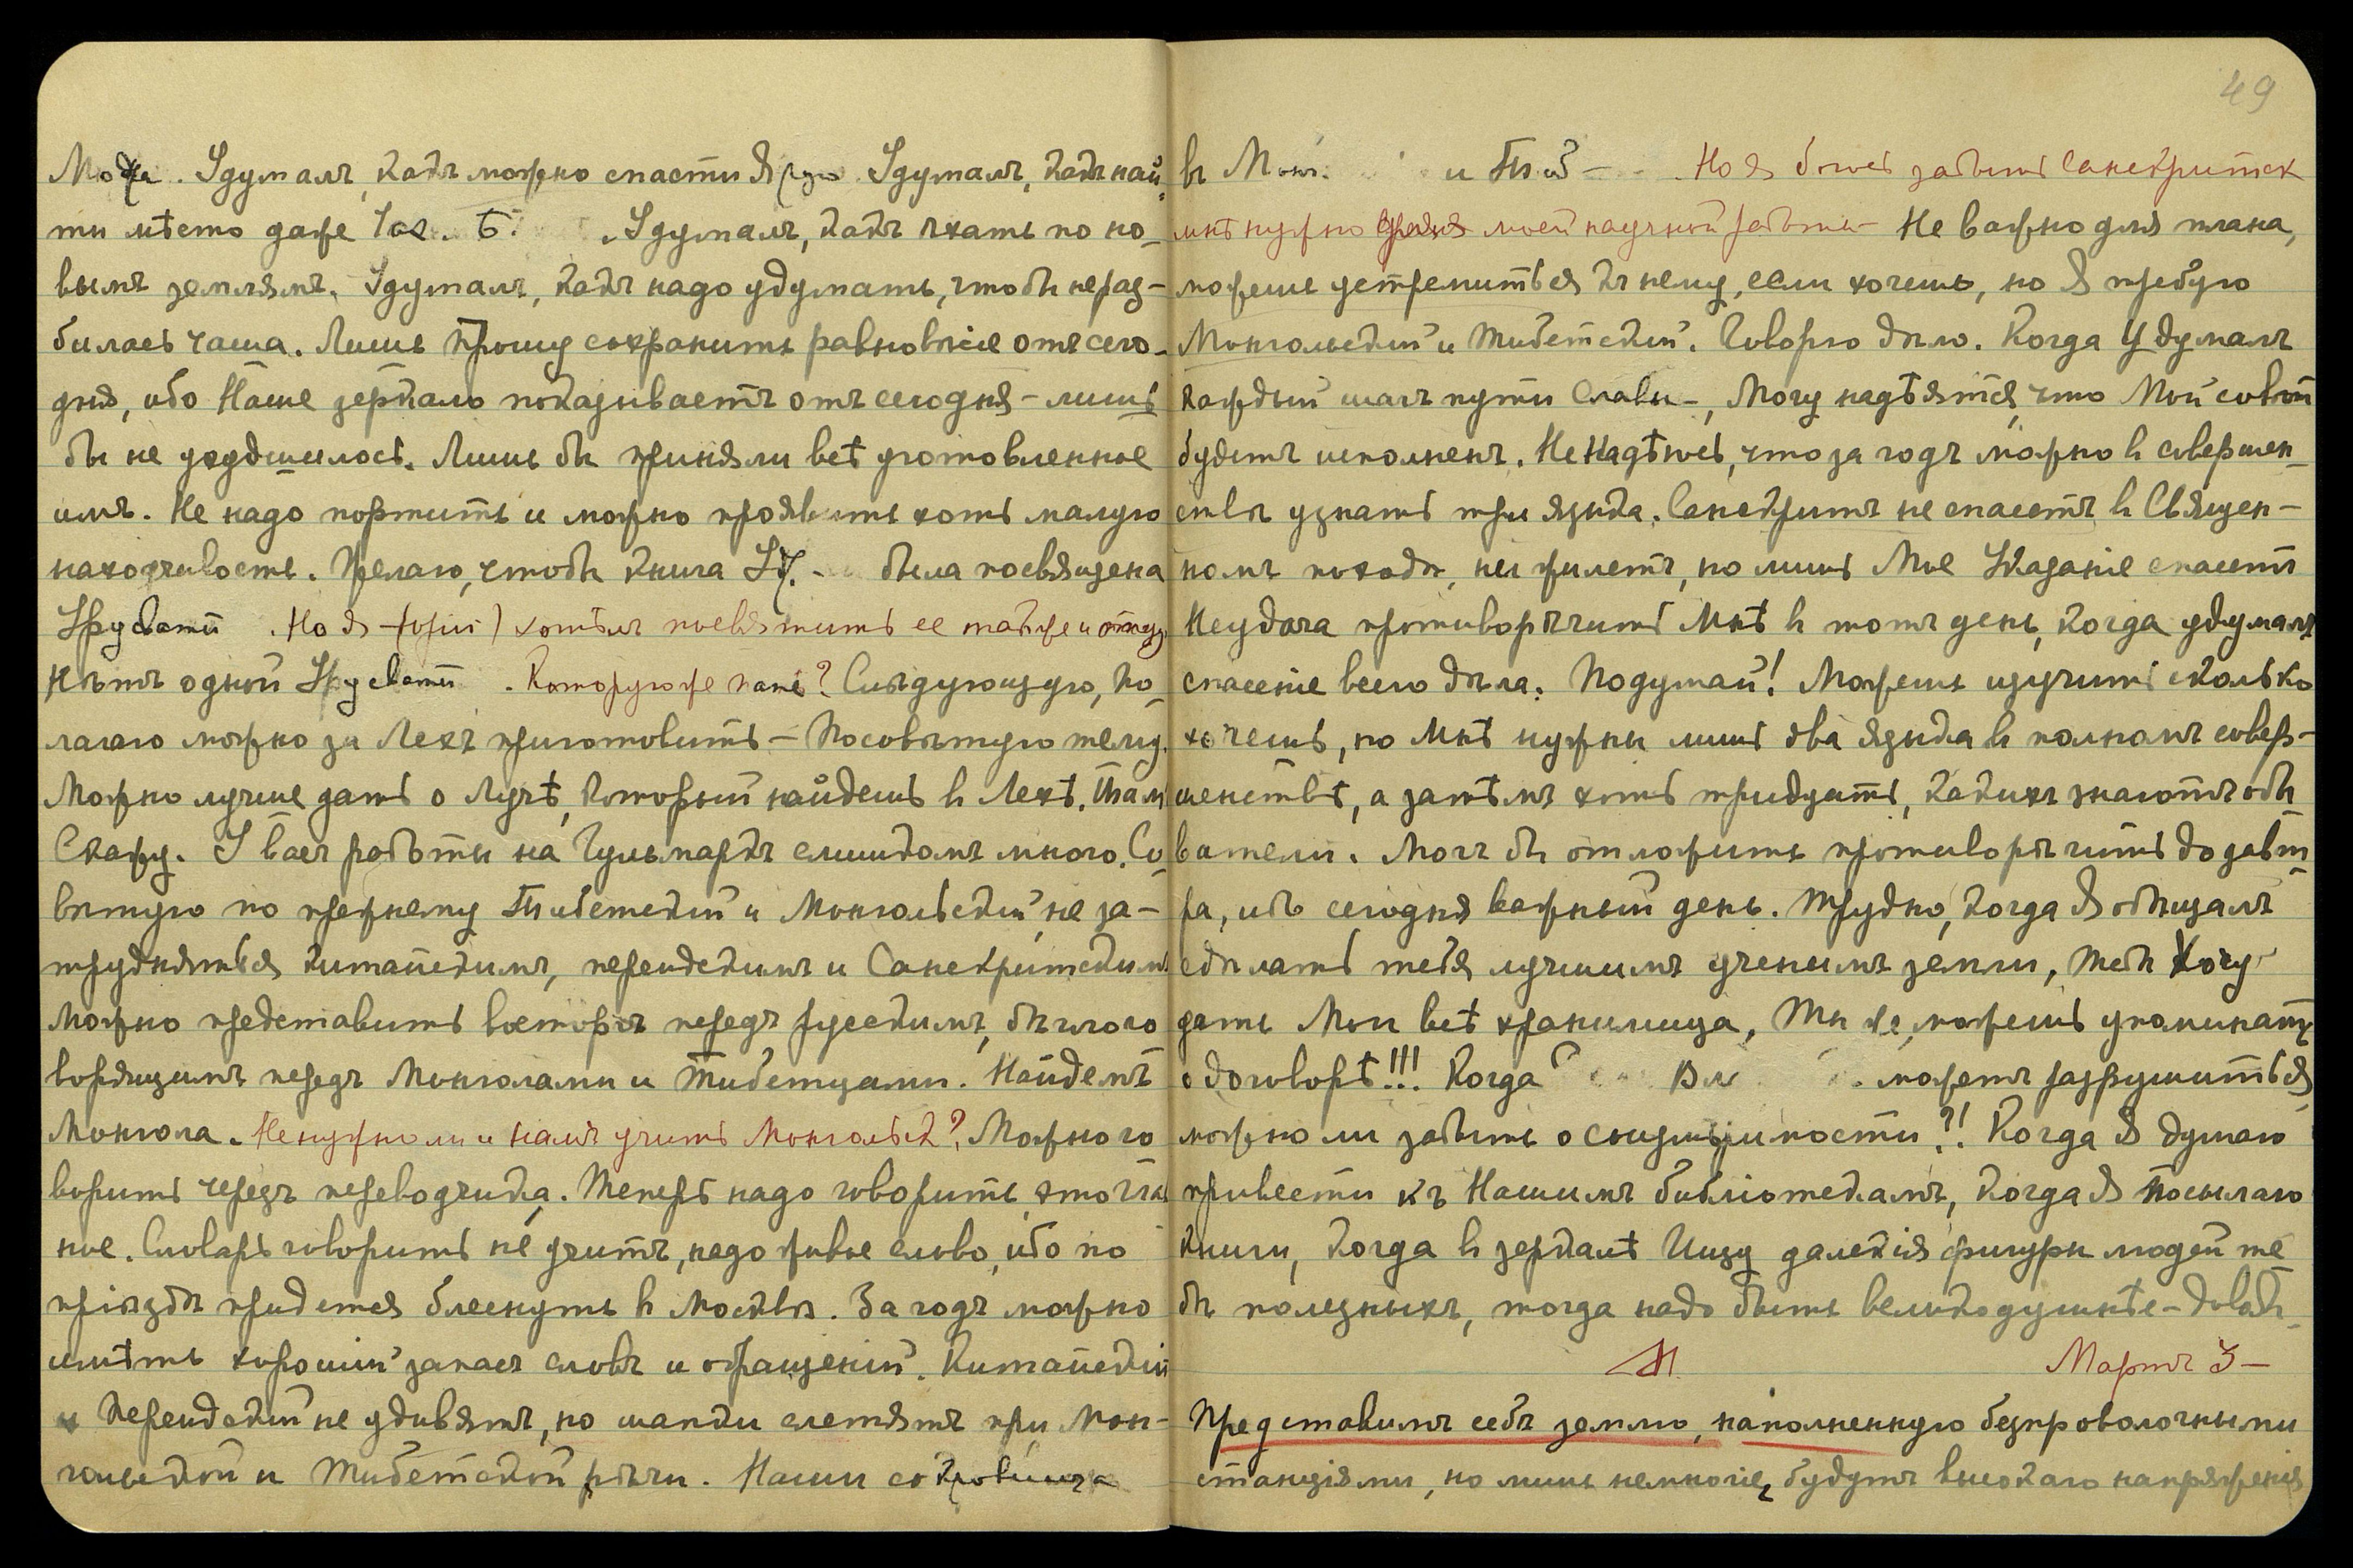 Удумалъ, какъ можно спасти Я Удумалъ, какъ най-
ти мѣсто даже Удумалъ, какъ ѣхать по но-
вымъ землямъ. Удумалъ, какъ надо удумать, чтобы не раз-
билась чаша. Лишь прошу сохранить равновѣсіе отъ сего-
дня, ибо Наше зеркало показываетъ отъ сегодня – лишь
бы не ухудшилось. Лишь бы приняли всѣ уготовленное
имъ. Не надо портить и можно проявить хоть малую
находчивость. Желаю, чтобы книга была посвящена
Урусвати. Но я – (Юрій) хотѣлъ посвятить ее также и отцу.
Нѣтъ одной Урусвати. Которую же папѣ? Слѣдующую, по-
лагаю можно за Лехъ приготовить – Посовѣтую тему.
Можно лучше дать о Лучѣ, который найдешь в Лехѣ. Тамъ
Скажу. У васъ работы на Гульмаргѣ слишкомъ много. Со-
вѣтую по прежнему Тибетскій и Монгольскій, не за-
трудняться китайскимъ, персидскимъ и Санскритскимъ
Можно представить восторгъ передъ русскимъ, бѣгло го
ворящимъ передъ Монголами и Тибетцами. Найдемъ
Монгола. Не нужно ли и намъ учить Монгольск? Можно го
ворить черезъ переводчика. Теперь надо говорить
ное. Словарь говорить не учитъ, надо живое слово, ибо по
пріѣздѣ придется блеснуть в Москвѣ. За годъ можно
имѣть хорошій запасъ словъ и обращеній. Китайскій
и Персидскій не удивятъ, но шапки слетятъ при Мон-
гольской и Тибетской рѣчи. Наши сокровища
49
въ Монг. и Тиб – Но я боюсь забыть Санскритск
мнѣ нужно для моей научной работы – Не важно для плана,
можешь устремиться къ нему, если хочешь, но Я требую
Монгольскій и Тибетскій. Говорю дѣло. Когда Удумалъ
каждый шагъ пути Славы –, Могу надѣятся, что Мой совѣтъ
будетъ исполненъ. Не Надѣюсь, что за годъ можно в совершен-
ствѣ узнать три языка. Санскритъ не спасетъ в Священ-
номъ походѣ, ни жилетъ, но лишь Мое Указаніе спасетъ
Неудача противорѣчить Мнѣ в тотъ день, когда удумалъ
спасеніе всего дѣла. Подумай! Можешь изучить сколько
хочешь, но Мнѣ нужны лишь два языка в полномъ совер-
шенствѣ, а затѣмъ хоть тридцать, какихъ знаютъ обы
ватели. Могъ бы отложить противорѣчить до завт-
ра, ибо сегодня важный день. Трудно, когда Я обѣщалъ
сдѣлать тебя лучшимъ ученымъ земли, Тебѣ Хочу
дать Мои всѣ хранилища, Ты же, можешь упоминать
о договорѣ!!! Когда можетъ разрушиться,
можно ли забыть о соизмѣримости?! Когда Я думаю
привести къ Нашимъ библіотекамъ, когда Я Посылаю
книги, когда в зеркалѣ Ищу далекія фигуры людей те
бѣ полезныхъ, тогда надо быть великодушнѣе – довольно
М. Мартъ 3 –
Представимъ себѣ землю, наполненную безпроволочными
станціями, но лишь немногіе будутъ высокаго напряженія